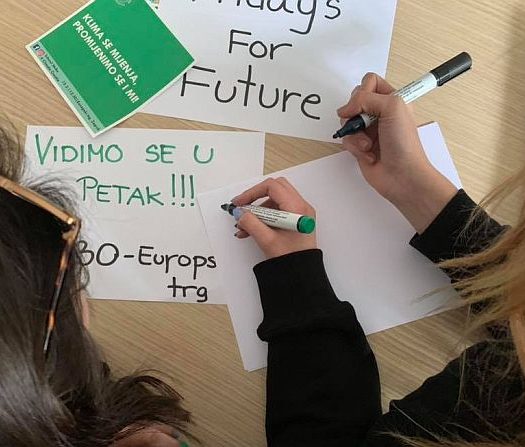 Fridays
For
Future
KLIMA SE MIJENJA,
PROMIJENIMO SE I MI!
VIDIMO SE U
PETAK!!!
30-Europs
trg